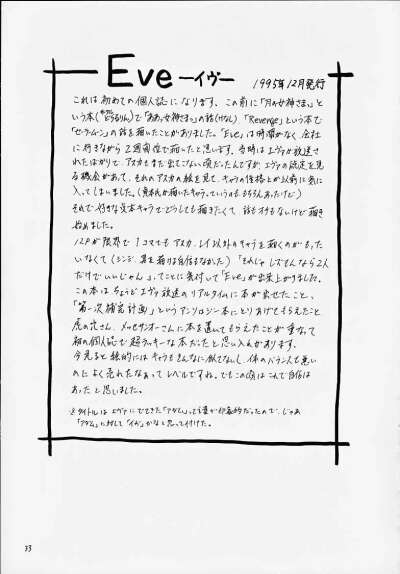 Eve ーイヴー
1995年12月発行
これは初めての個人誌になります。この前に「月の女神さま」と
いう本で「ああっ女神さま」の話、「Revenge」という本で
「セーラームーン」の話を描いたことがありました。「Eve」は時間がなく会社
に行きながら2週間位で描いたと思います。当時はエヴァが放送さ
れたばかりで、アスカもまだ出てこない頃だったんですが、エヴァの設定を見
る機会があって、それのアスカの絵を見て、キャラの性格とか以前に気に
入ってしまいました。(貞本氏が描いたキャラっていうのももちろんあったけど)
それで好きな貞本キャラでどうしても描きたくて 話もオチもないけど描き
始めました。
12Pが限界で1コマでもアスカ、レイ以外のキャラを描くのがもった
いなくて(シンジ、
だけでいいじゃん」ってことに
この本はちょうどエヴァ放送のリアルタイムに本が出せたこと、
「第一次補完計画」というアンソロジー本にとりあげてもらえたこと
虎の穴さん、メッセサンオーさんに本を置いてもらえたことが重なって
初の個人誌で超ラッキーな本だったと思い入れがあります。
今見ると絵的にはキャラもそんなに似てないし、体のバランスも悪い
のによく売れたなぁってレベルですね。でもこの頃はこれで自信は
あったと思いました。
タイトルは エヴァにでてきた「アダム」って言葉が印象的だったので、じゃあ
「アダム」に対して「イヴ」かなと思って付けた。
33